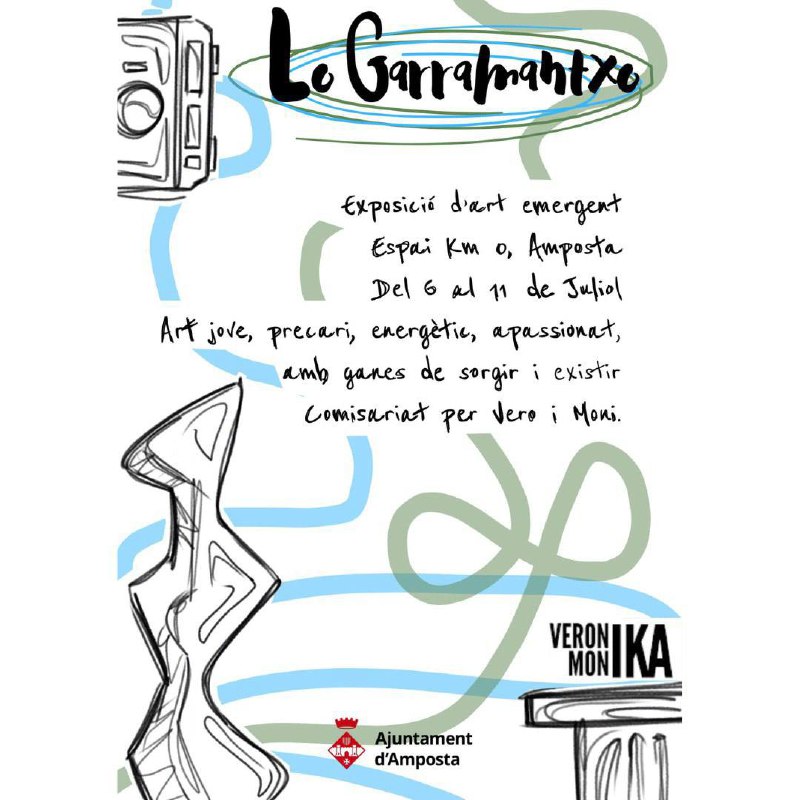 Lo Garramantxo
Exposició d'art emergent
Espai Km 0, Amposta
Del 6 al 11 de Juliol
Art jove, precari, energètic, apassionat,
amb ganes de sorgir i existir
Comisariat per Vero i Moni.
VERON
MON IKA
Ajuntament
d'Amposta